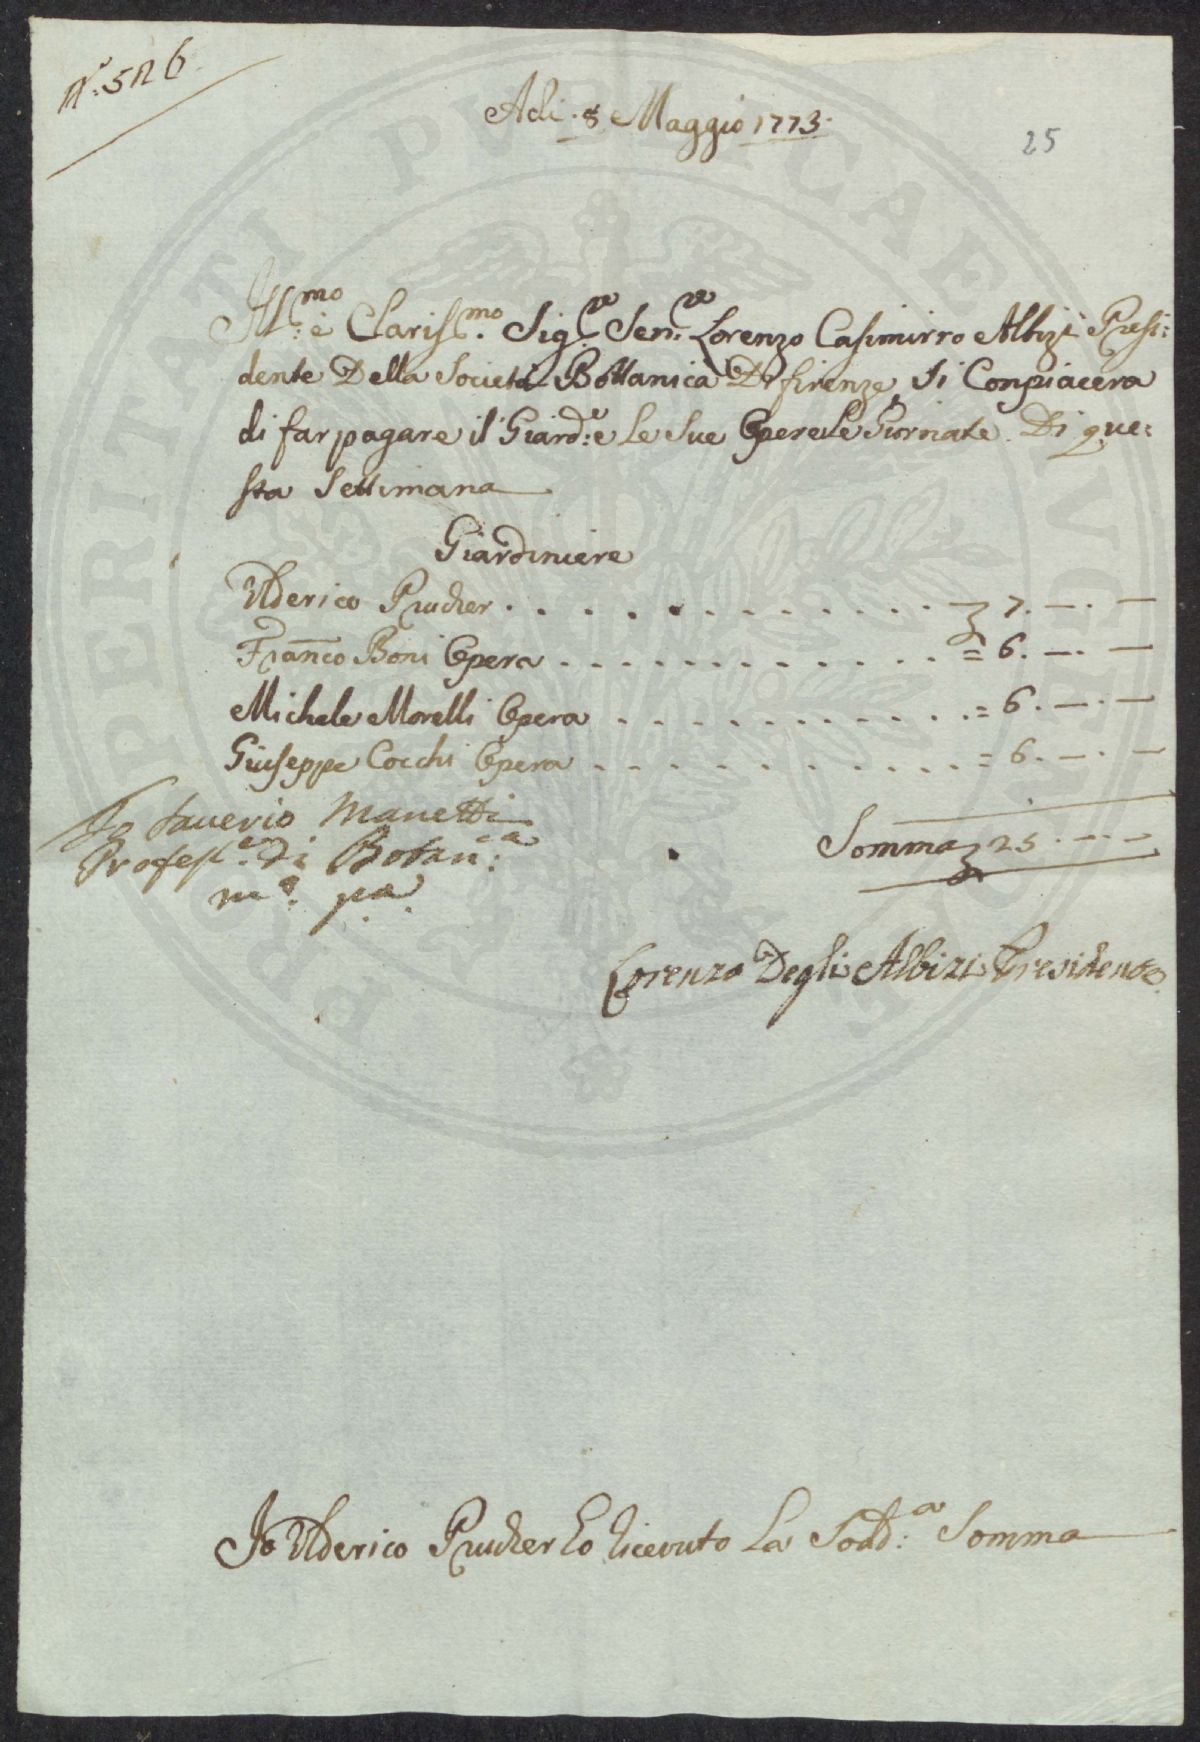 N.º 526
Adi. 8 Maggio 1773.
25
Ill:mo è Clariss:mo Sig:re Sen:re Lorenzo Casimirro Albizi Presi:
dente Della Società Bottanica Di firenze, Si Conpiacera
di far pagare il Giard:re e Le Sue Opere Le Giornate Di que:
sta Settimana
Giardiniere
Ulderico Prucher . . . . . . . . . . . . 7. —. —
Fran̄co Boni Opera . . . . . . . . . . . = 6. —. —
Michele Morelli Opera . . . . . . . . . = 6. —. —
Giuseppe Cocchi Opera . . . . . . . . . = 6. —. —
Io Saverio Manetti
Profess:re di Botan:ca
m.º p.a
Somma 25. — —
Lorenzo Degli Albizi Presidente
Io Ulderico Prucher ho ricevuto La Sodd:a Somma